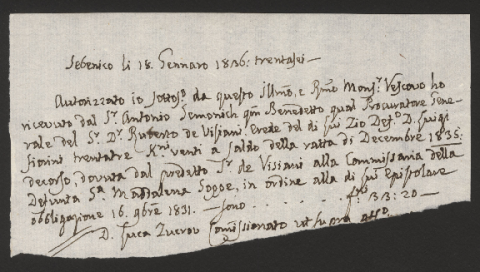 Sebenico li 18. Gennaro 1836: trentasei —
Autorizzato io sottos.º da questo Illmo, e Rmo Mons.r Vescovo ho
ricevuto dal Sr. Antonio Semonich qm Benedetto qual Procuratore Gene-
rale del Sr. Dr. Roberto de Visiani, Erede del di suo Zio Def.º D. Luigi
fiorini trentatre Kni venti a saldo della ratta di Decembre 1835:
decorso, dovuta dal predetto Sr. de Visiani alla Commissaria della
Defunta Sa. Maddalena Soppe, in ordine alla di sua Epistolare
obbligazione 16. 9bre 1831. — sono . . . . . . f.ni 33: 20 —
D. Luca Zuerou Comissionato